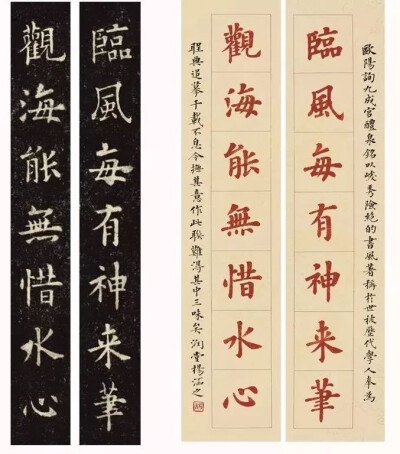 臨風每有神来筆
觀海能無惜水心
歐陽詢九成宮醴泉銘以峻秀險絕的書風著稱於世被歷代學人奉為
臨風每有神来筆
觀海能無惜水心
典追摹千載不息今撫其意作此聯難得其中三味矣